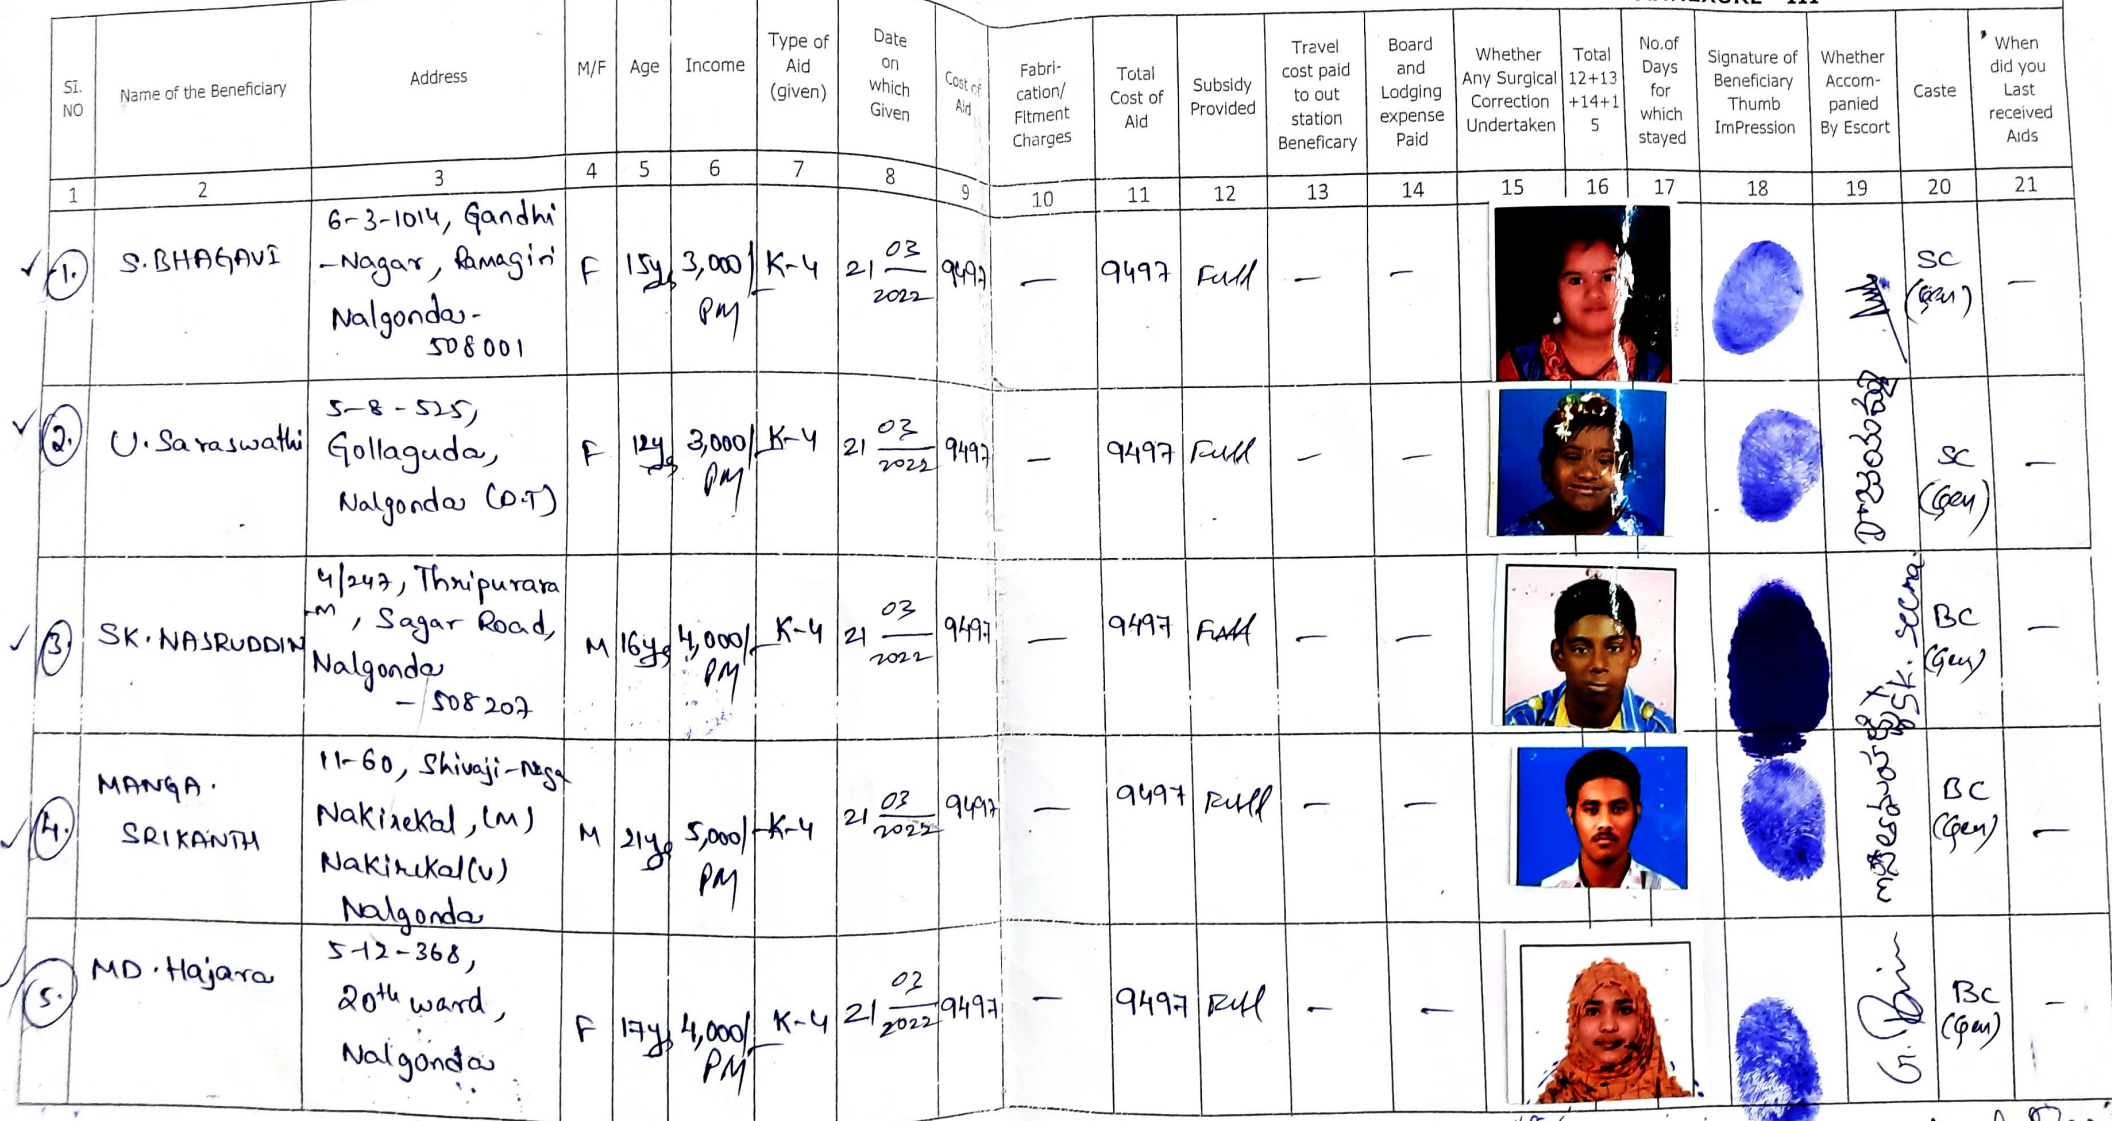 ANNEXURE - III
SI. NO
Name of the Beneficiary
Address
M/F
Age
Income
Type of Aid (given)
Date on which Given
Cost of Aid
Fabri-cation/ Fitment Charges
Total Cost of Aid
Subsidy Provided
Travel cost paid to out station Beneficary
Board and Lodging expense Paid
Whether Any Surgical Correction Undertaken
Total 12+13+14+15
No.of Days for which stayed
Signature of Beneficiary Thumb ImPression
Whether Accom-panied By Escort
Caste
When did you Last received Aids
1 2 3 4 5 6 7 8 9 10 11 12 13 14 15 16 17 18 19 20 21
1. S.BHAGAVI
6-3-1014, Gandhi
-Nagar, Ramagiri
Nalgonda-
508001
F 15ys 3,000/- PM K-4 21 03/2022 9497 — 9497 Full — — SC (Gen) —
2. U.Saraswathi
5-8-525,
Gollaguda,
Nalgonda (D.T)
F 12ys 3,000/- PM K-4 21 03/2022 9497 — 9497 Full — — SC (Gen) —
3. SK.NASRUDDIN
4/247, Thripurara
-m, Sagar Road,
Nalgonda
- 508207
M 16ys 4,000/- PM K-4 21 03/2022 9497 — 9497 Full — — SK. Seema BC (Gen) —
4. MANGA.
SRIKANTH
11-60, Shivaji-Naga
Nakirekal, (M)
Nakirekal(V)
Nalgonda
M 21ys 5,000/- PM K-4 21 03/2022 9497 — 9497 Full — — BC (Gen) —
5. MD.Hajara
5-12-368,
20th ward,
Nalgonda
F 17ys 4,000/- PM K-4 21 03/2022 9497 — 9497 Full — — BC (Gen) —